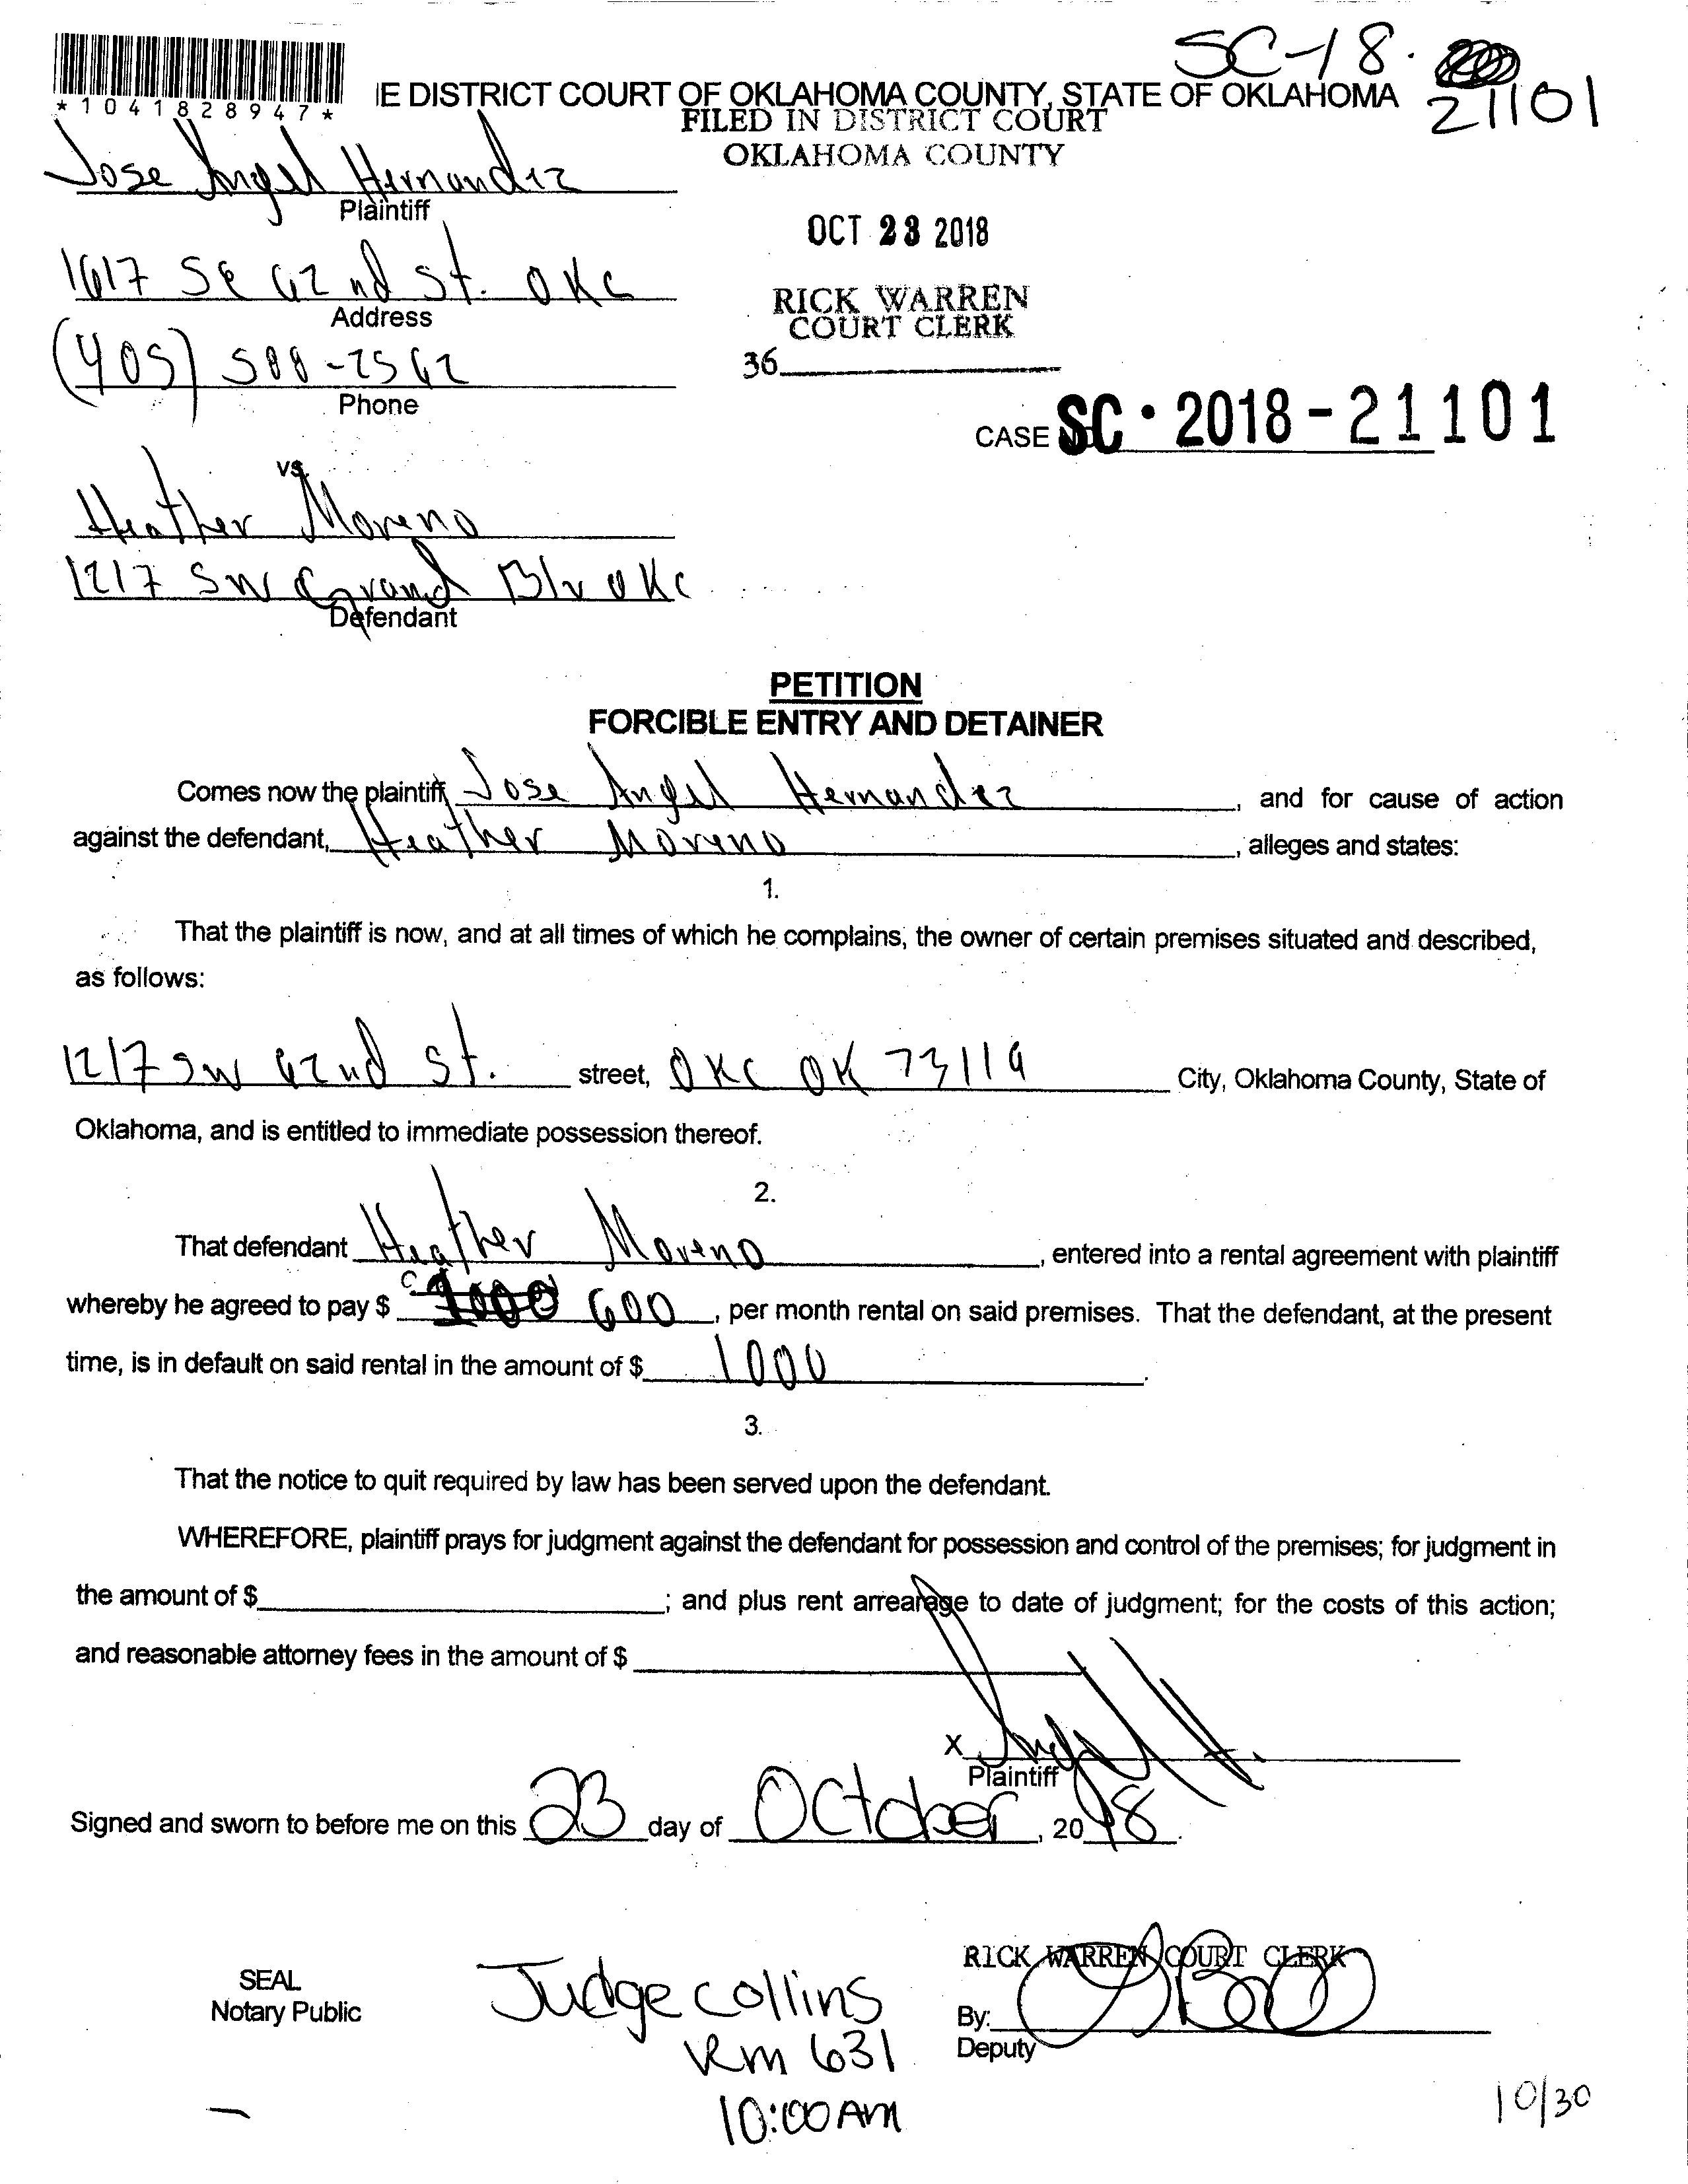 SC-18-
21101
*1041828947*
IE DISTRICT COURT OF OKLAHOMA COUNTY, STATE OF OKLAHOMA
FILED IN DISTRICT COURT
OKLAHOMA COUNTY
Jose Angel Hernandez
Plaintiff
OCT 23 2018
1617 SE 62nd St. OKC
Address
RICK WARREN
COURT CLERK
(405) 588-2562
Phone
36
CASE SC-2018-21101
vs.
Heather Moreno
1217 SW Grand Blv OKC
Defendant
PETITION
FORCIBLE ENTRY AND DETAINER
Comes now the plaintiff, Jose Angel Hernandez, and for cause of action
against the defendant, Heather Moreno, alleges and states:
1.
That the plaintiff is now, and at all times of which he complains, the owner of certain premises situated and described,
as follows:
1217 SW 62nd St. street, OKC OK 73119 City, Oklahoma County, State of
Oklahoma, and is entitled to immediate possession thereof.
2.
That defendant Heather Moreno, entered into a rental agreement with plaintiff
whereby he agreed to pay $ 1000 600, per month rental on said premises. That the defendant, at the present
time, is in default on said rental in the amount of $ 1000.
3.
That the notice to quit required by law has been served upon the defendant.
WHEREFORE, plaintiff prays for judgment against the defendant for possession and control of the premises; for judgment in
the amount of $ ; and plus rent arrearage to date of judgment; for the costs of this action;
and reasonable attorney fees in the amount of $
X
Plaintiff
Signed and sworn to before me on this 23 day of October, 2018.
RICK WARREN COURT CLERK
SEAL
Notary Public
Judge Collins
By:
Deputy
Rm 631
10:00AM
10/30